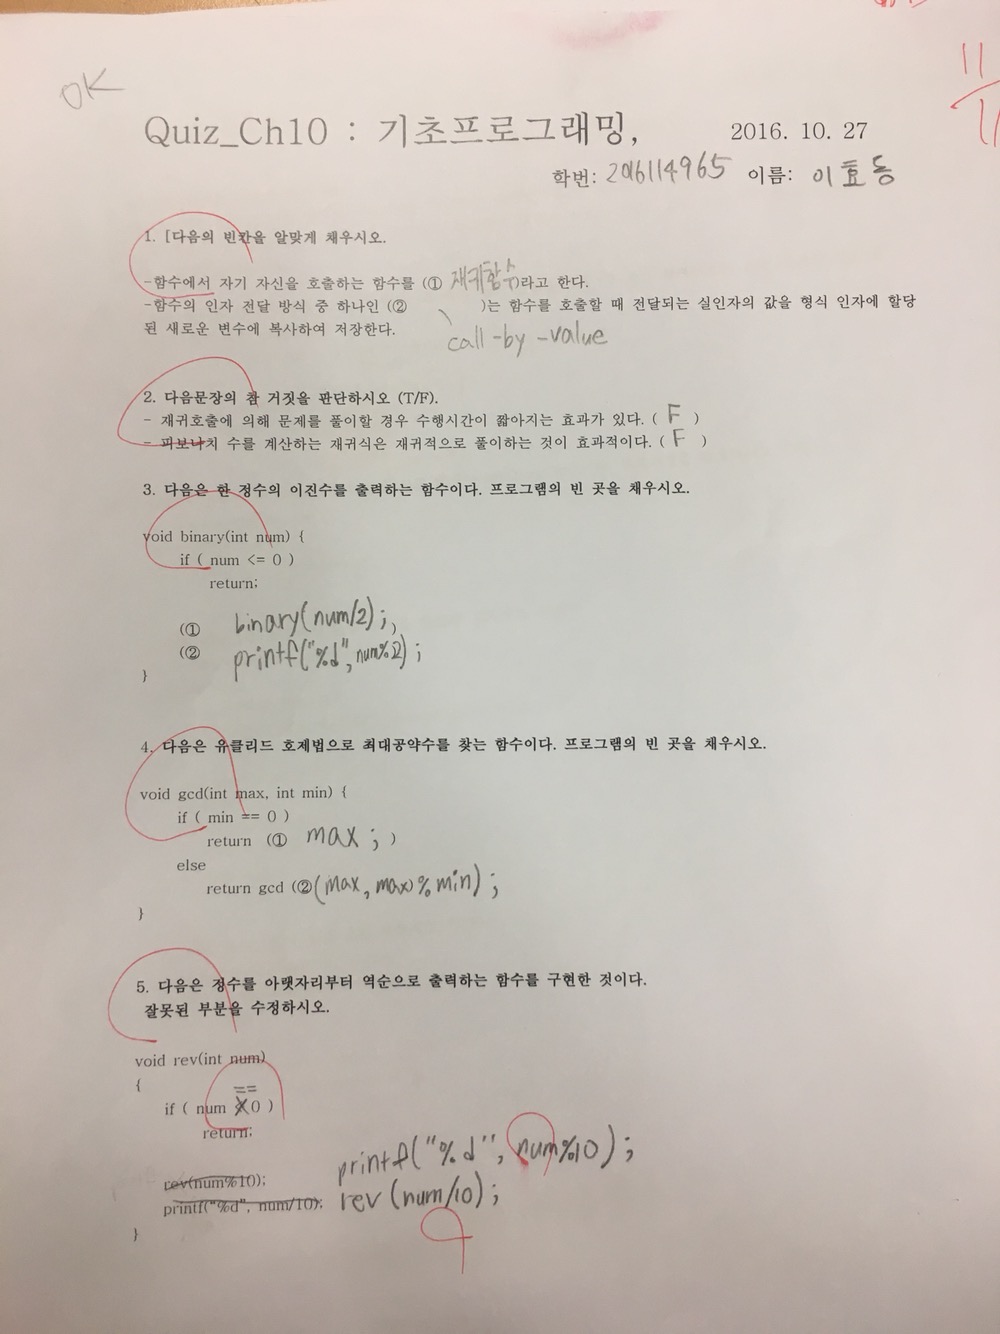 OK
11
Quiz_Ch10 : 기초프로그래밍, 2016. 10. 27
학번: 2016114965 이름: 이효동
1. [다음의 빈칸을 알맞게 채우시오.
-함수에서 자기 자신을 호출하는 함수를 (① 재귀함수)라고 한다.
-함수의 인자 전달 방식 중 하나인 (② )는 함수를 호출할 때 전달되는 실인자의 값을 형식 인자에 할당
된 새로운 변수에 복사하여 저장한다.
call-by-value
2. 다음문장의 참 거짓을 판단하시오 (T/F).
- 재귀호출에 의해 문제를 풀이할 경우 수행시간이 짧아지는 효과가 있다. ( F )
- 피보나치 수를 계산하는 재귀식은 재귀적으로 풀이하는 것이 효과적이다. ( F )
3. 다음은 한 정수의 이진수를 출력하는 함수이다. 프로그램의 빈 곳을 채우시오.
void binary(int num) {
if ( num <= 0 )
return;
(① binary(num/2); )
(② printf("%d", num%2);
}
4. 다음은 유클리드 호제법으로 최대공약수를 찾는 함수이다. 프로그램의 빈 곳을 채우시오.
void gcd(int max, int min) {
if ( min == 0 )
return (① max ; )
else
return gcd (②(max, max%min) ;
}
5. 다음은 정수를 아랫자리부터 역순으로 출력하는 함수를 구현한 것이다.
잘못된 부분을 수정하시오.
void rev(int num)
{
==
if ( num < 0 )
return;
printf("%d", num%10);
rev(num%10);
rev(num/10);
printf("%d", num/10);
}